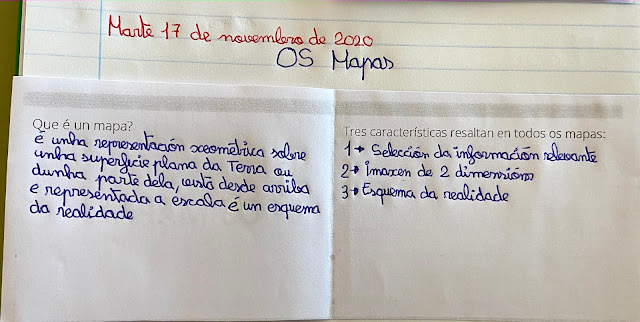 Marte 17 de novembro de 2020
OS Mapas
Que é un mapa?
é unha representación xeométrica sobre
unha superficie plana da Terra ou
dunha parte dela, vista desde arriba
e representada a escala é un esquema
da realidade
Tres características resaltan en todos os mapas:
1→ Selección da información relevante
2→ Imaxen de 2 dimensións
3→ Esquema da realidade